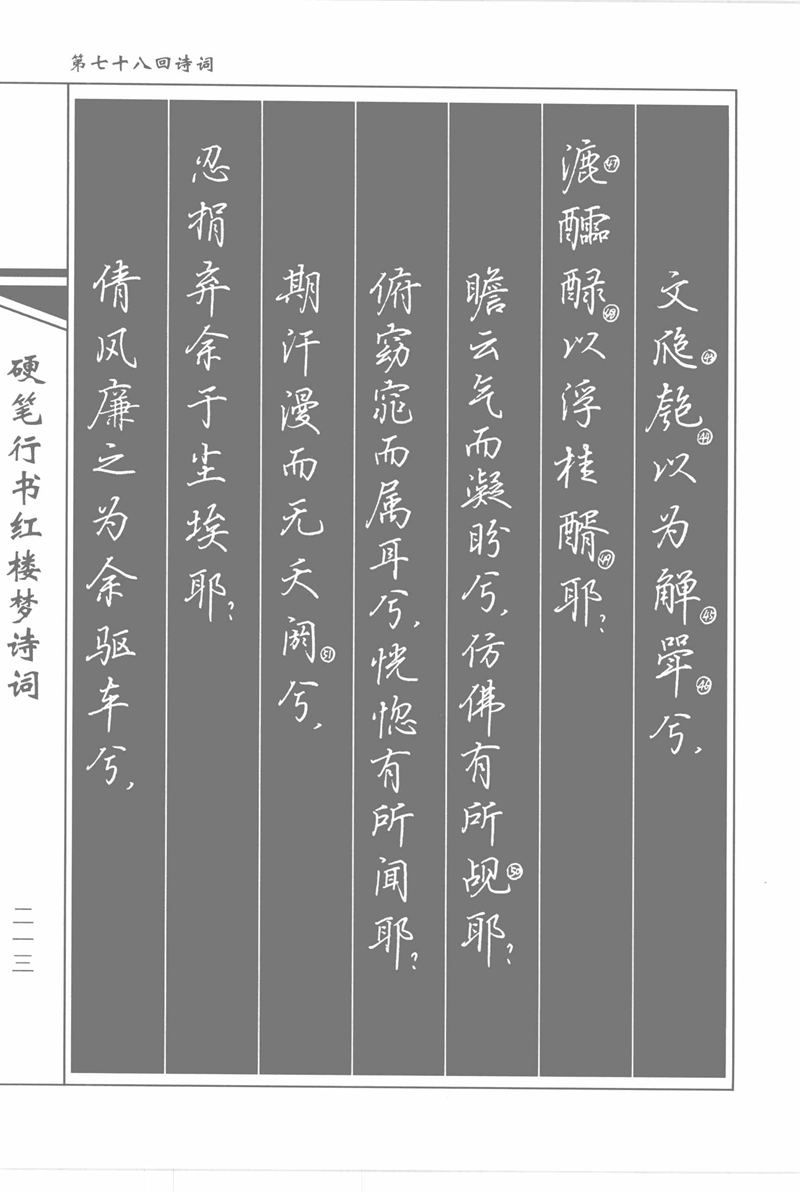 第七十八回诗词
文瓟㊸匏㊹以为觯㊺斝㊻兮,
漉㊼醽醁㊽以浮桂醑㊾耶?
瞻云气而凝盼兮,仿佛有所觇㊿耶?
俯窈窕而属耳兮,恍惚有所闻耶?
期汗漫而无夭阏51兮,
忍捐弃余于尘埃耶?
倩风廉之为余驱车兮,
硬笔行书红楼梦诗词
二一三